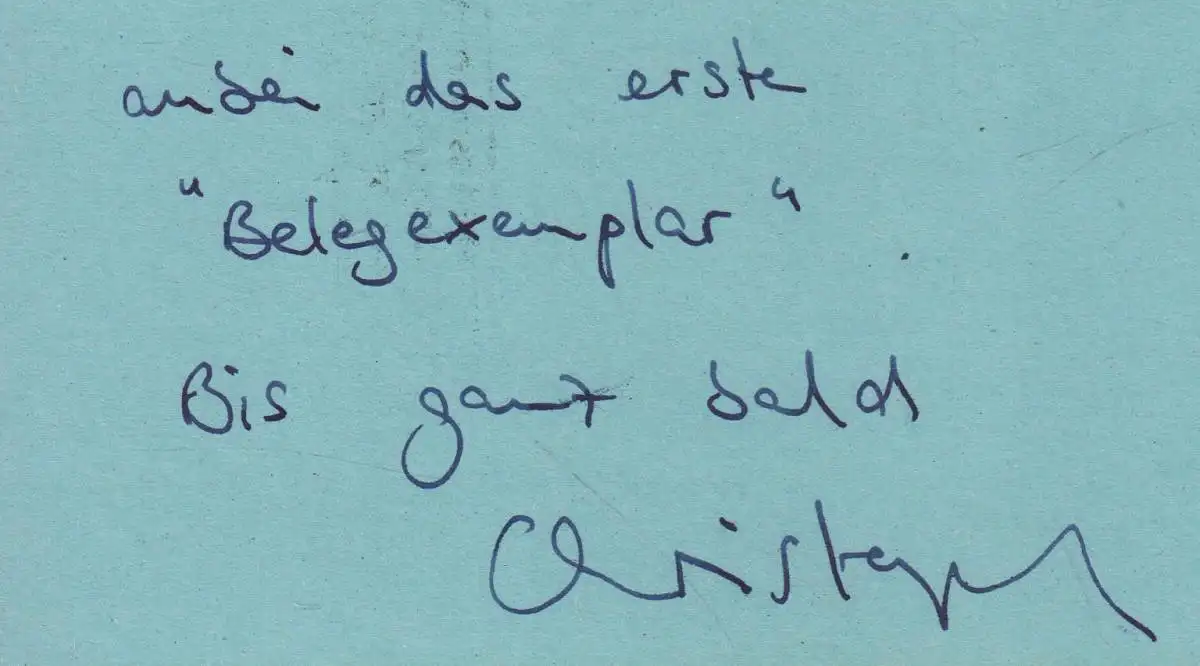 anbei das erste
"Belegexemplar"
Bis ganz bald
Christoph